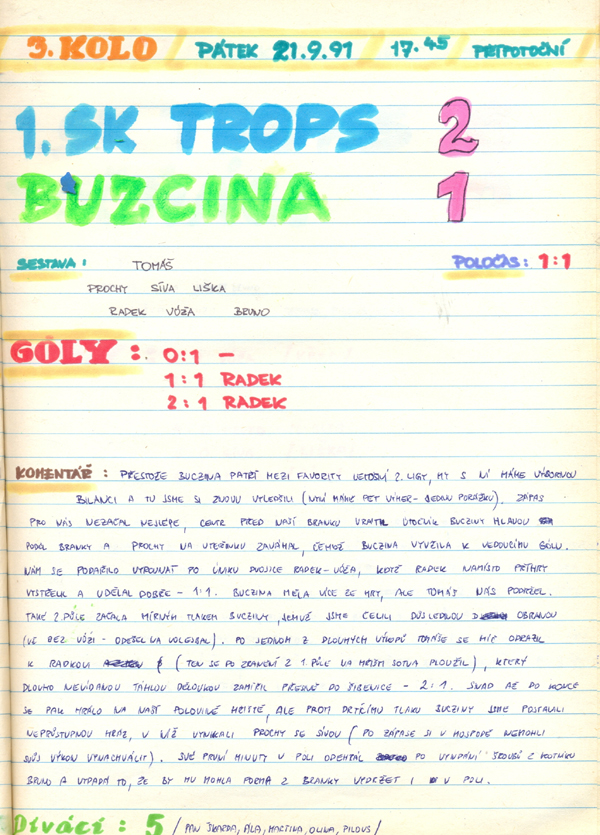 3. KOLO PÁTEK 21.9.91 17.45 PŘÍPOTOČNÍ
1. SK TROPS 2
BUZCINA 1
SESTAVA: TOMÁŠ POLOČAS: 1:1
PROCHY SÍVA LIŠKA
RADEK VÓŽA BRUNO
GÓLY: 0:1 —
1:1 RADEK
2:1 RADEK
KOMENTÁŘ: PŘESTOŽE BUCZINA PATŘÍ MEZI FAVORITY LETOŠNÍ 2. LIGY, MY S NÍ MÁME VÝBORNOU
BILANCI A TU JSME SI ZNOVU VYLEPŠILI (NYNÍ MÁME PĚT VÝHER - JEDNU PORÁŽKU). ZÁPAS
PRO NÁS NEZAČAL NEJLÉPE, CENTR PŘED NAŠÍ BRANKU VRÁTIL ÚTOČNÍK BUCZINY HLAVOU
PODÉL BRANKY A PROCHY NA VTEŘINKU ZAVÁHAL, ČEHOŽ BUCZINA VYUŽILA K VEDOUCÍMU GÓLU.
NÁM SE PODAŘILO VYROVNAT PO ÚNIKU DVOJICE RADEK-VÓŽA, KDYŽ RADEK NAMÍSTO PŘIHRY
VYSTŘELIL A UDĚLAL DOBŘE - 1:1. BUCZINA MĚLA VÍCE ZE HRY, ALE TOMÁŠ NÁS PODRŽEL.
TAKÉ 2. PŮLE ZAČALA MÍRNÝM TLAKEM BUCZINY, JEMUŽ JSME ČELILI DŮSLEDNOU OBRANOU
(VE BEZ VÓŽI - ODEŠEL NA VOLEJBAL). PO JEDNOM Z DLOUHÝCH VÝKOPŮ TOMÁŠE SE MÍČ ODRAZIL
K RADKOVI (TEN SE PO ZRANĚNÍ Z 1. PŮLE NA HŘIŠTI SOTVA PLOUŽIL), KTERÝ
DLOUHO NEVÍDANOU TÁHLOU DĚLOVKOU ZAMÍŘIL PŘESNĚ DO ŠIBENICE - 2:1. SNAD AŽ DO KONCE
SE PAK HRÁLO NA NAŠÍ POLOVINĚ HŘIŠTĚ, ALE PROTI DRTIVÉMU TLAKU BUCZINY JSME POSTAVILI
NEPRŮSTUPNOU HRÁZ, V NÍŽ VYNIKALI PROCHY SE SÍVOU (PO ZÁPASE SI V HOSPODĚ NEMOHLI
SVŮJ VÝKON VYNACHVÁLIT). SVÉ PRVNÍ MINUTY V POLI ODEHRÁL PO VYNDÁNÍ ŠROUBŮ Z KOTNÍKU
BRUNO A VYPADÁ TO, ŽE BY MU MOHLA FORMA Z BRANKY VYDRŽET I V POLI.
Diváci: 5 / PAN ŠKARDA, ÁJA, MARTINA, OLINA, PILOUS /